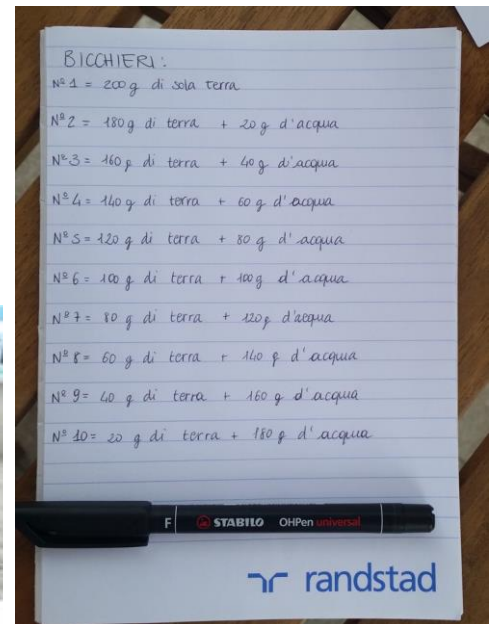 BICCHIERI:
Nº 1 = 200 g di sola terra
Nº 2 = 180 g di terra + 20 g d'acqua
Nº 3 = 160 g di terra + 40 g d'acqua
Nº 4 = 140 g di terra + 60 g d'acqua
Nº 5 = 120 g di terra + 80 g d'acqua
Nº 6 = 100 g di terra + 100 g d'acqua
Nº 7 = 80 g di terra + 120 g d'acqua
Nº 8 = 60 g di terra + 140 g d'acqua
Nº 9 = 40 g di terra + 160 g d'acqua
Nº 10 = 20 g di terra + 180 g d'acqua
F STABILO OHPen universal
randstad